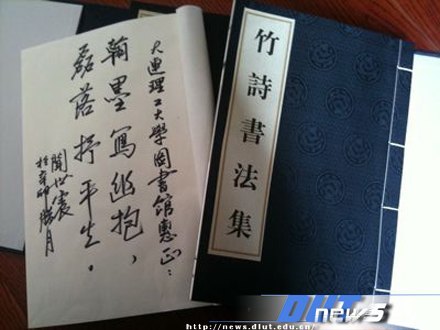 大连理工大學図書馆惠正：
翰墨寫幽抱，
磊落抒平生。
闻世震
於辛卯腊月
竹詩書法集
DLUT news
http://news.dlut.edu.cn/